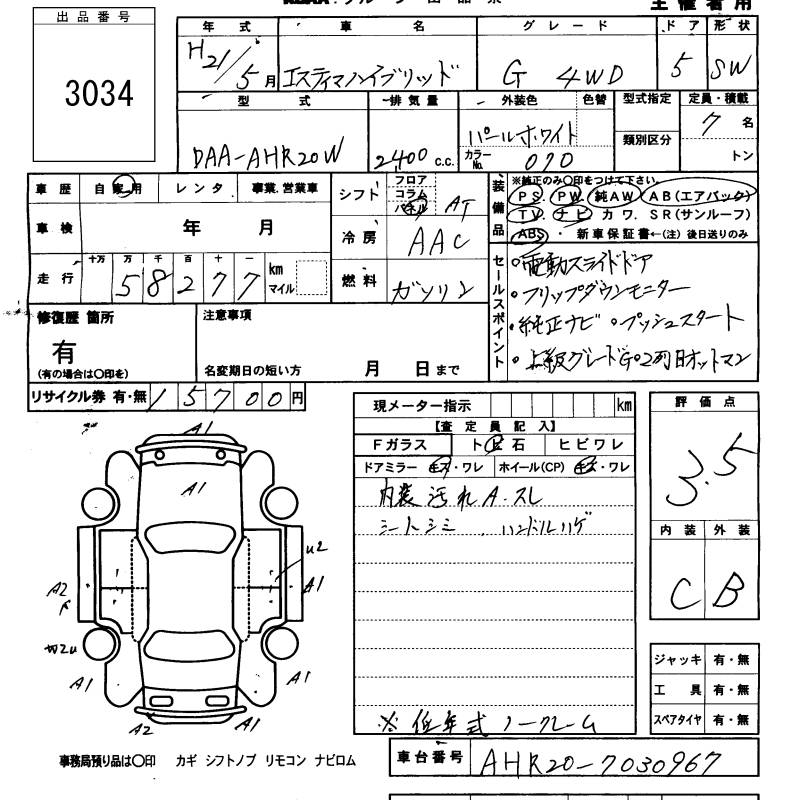 出品番号
3034
主催者用
年式 車名 グレード ドア 形状
H21/5月 エスティマハイブリッド G 4WD 5 SW
型式 排気量 外装色 色替 型式指定 定員・積載
DAA-AHR20W 2400c.c. パールホワイト 7名
カラーNo. 070 類別区分 トン
車歴 自家用 レンタ 事業、営業車
シフト フロア コラム パネル AT
装備品 ※純正のみ○印をつけて下さい。
PS. PW. 純AW AB(エアバック)
TV. ナビ カワ. SR(サンルーフ)
ABS・新車保証書←(注)後日送りのみ
車検 年 月
冷房 AAC
走行 十万 万 千 百 十 一
58277 km マイル
燃料 ガソリン
セールスポイント
・電動スライドドア
・フリップダウンモニター
・純正ナビ ・プッシュスタート
・上級グレードG・2列目オットマン
修復歴 箇所
有
(有の場合は○印を)
注意事項
名変期日の短い方 月 日まで
リサイクル券 有・無 15700円
現メーター指示 km
【査定員記入】
Fガラス トビ石 ヒビワレ
ドアミラー キズ・ワレ ホイール(CP) キズ・ワレ
内装汚れA.スレ
シートシミ ハンドルハゲ
※低年式ノークレーム
評価点
3.5
内装 外装
C B
ジャッキ 有・無
工具 有・無
スペアタイヤ 有・無
A1
A1
U2
A2
A1
A1
A1
A2
A1
事務局預り品は○印 カギ シフトノブ リモコン ナビロム
車台番号 AHR20-7030967